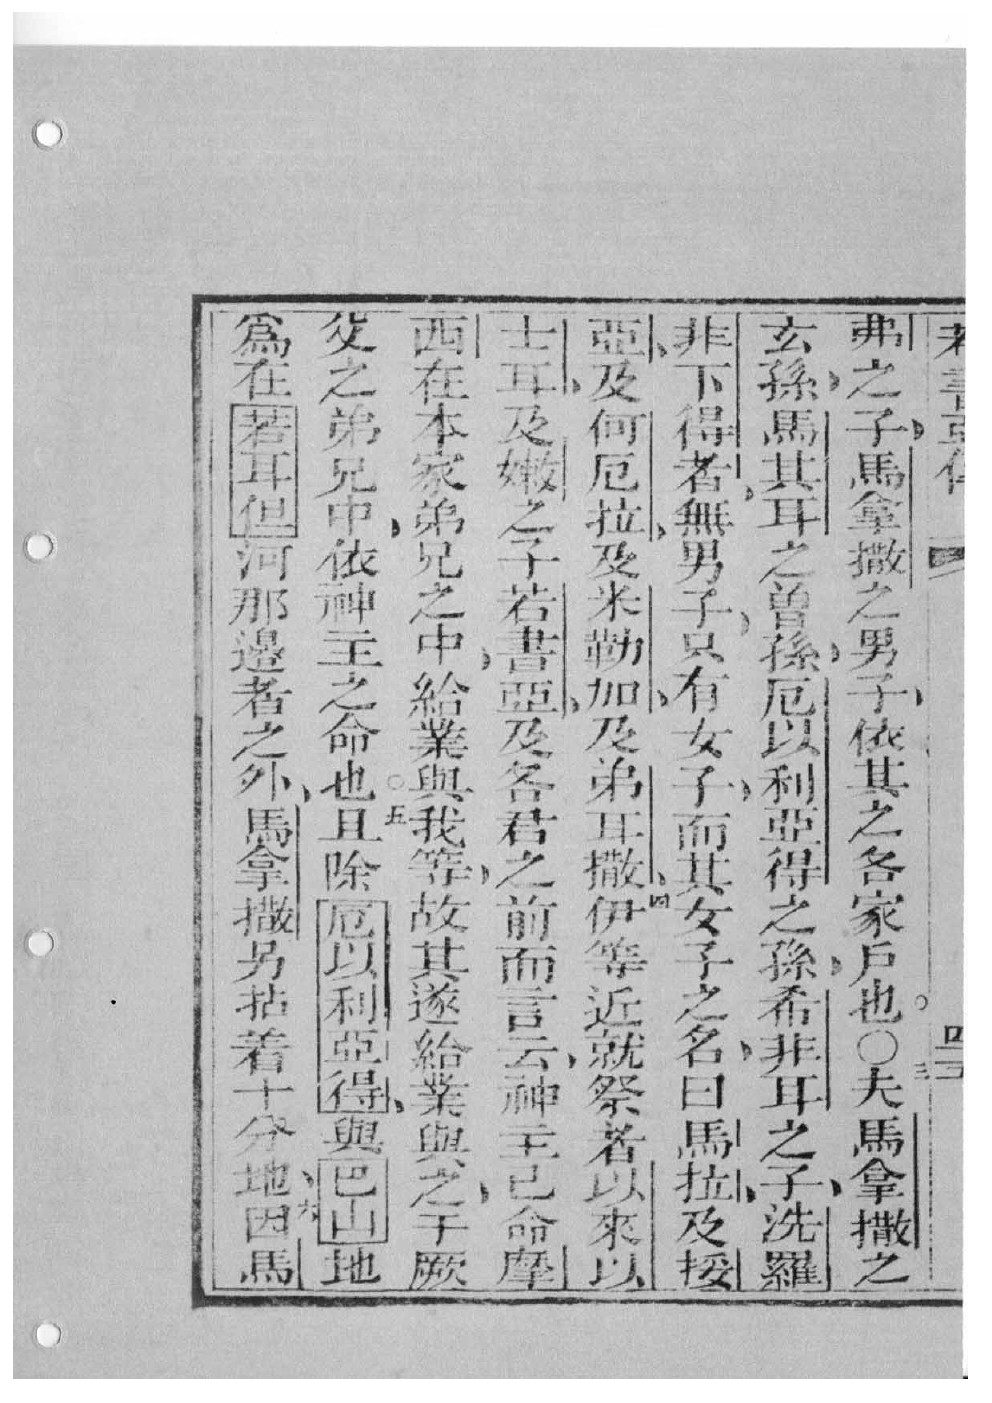 若書亞傳 四二
弗之子馬拿撒之男子依其之各家戶也○三夫馬拿撒之
玄孫馬其耳之曾孫厄以利亞得之孫希非耳之子洗羅
非下得者無男子只有女子而其女子之名曰馬拉及挼
亞及何厄拉及米勒加及弟耳撒四伊等近就祭者以來以
士耳及嫩之子若書亞及各君之前而言云神主已命摩
西在本家弟兄之中給業與我等故其遂給業與之于厥
父之弟兄中依神主之命也○五且除厄以利亞得與巴山地
爲在若耳但河那邊者之外馬拿撒另拈着十分地六因馬